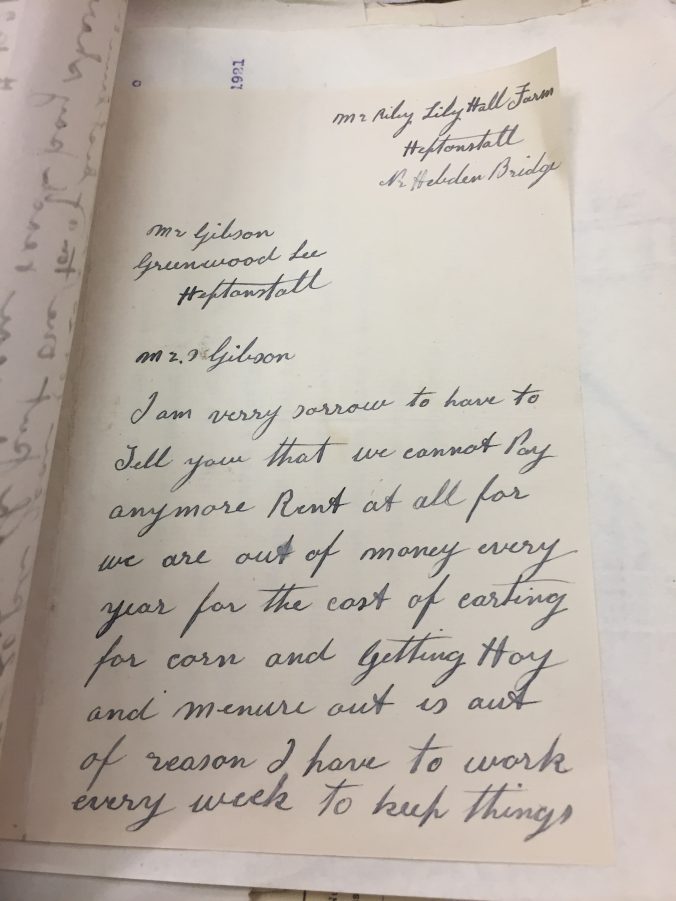 1921
Mr Riley Lily Hall Farm
Heptonstall
Nr Hebden Bridge
Mr Gibson
Greenwood Lee
Heptonstall
Mr. Gibson
I am verry sorrow to have to
Tell yow that we cannot Pay
anymore Rent at all for
we are out of money every
year for the cost of carting
for corn and Getting Hay
and menure out is out
of reason I have to work
every week to keep things